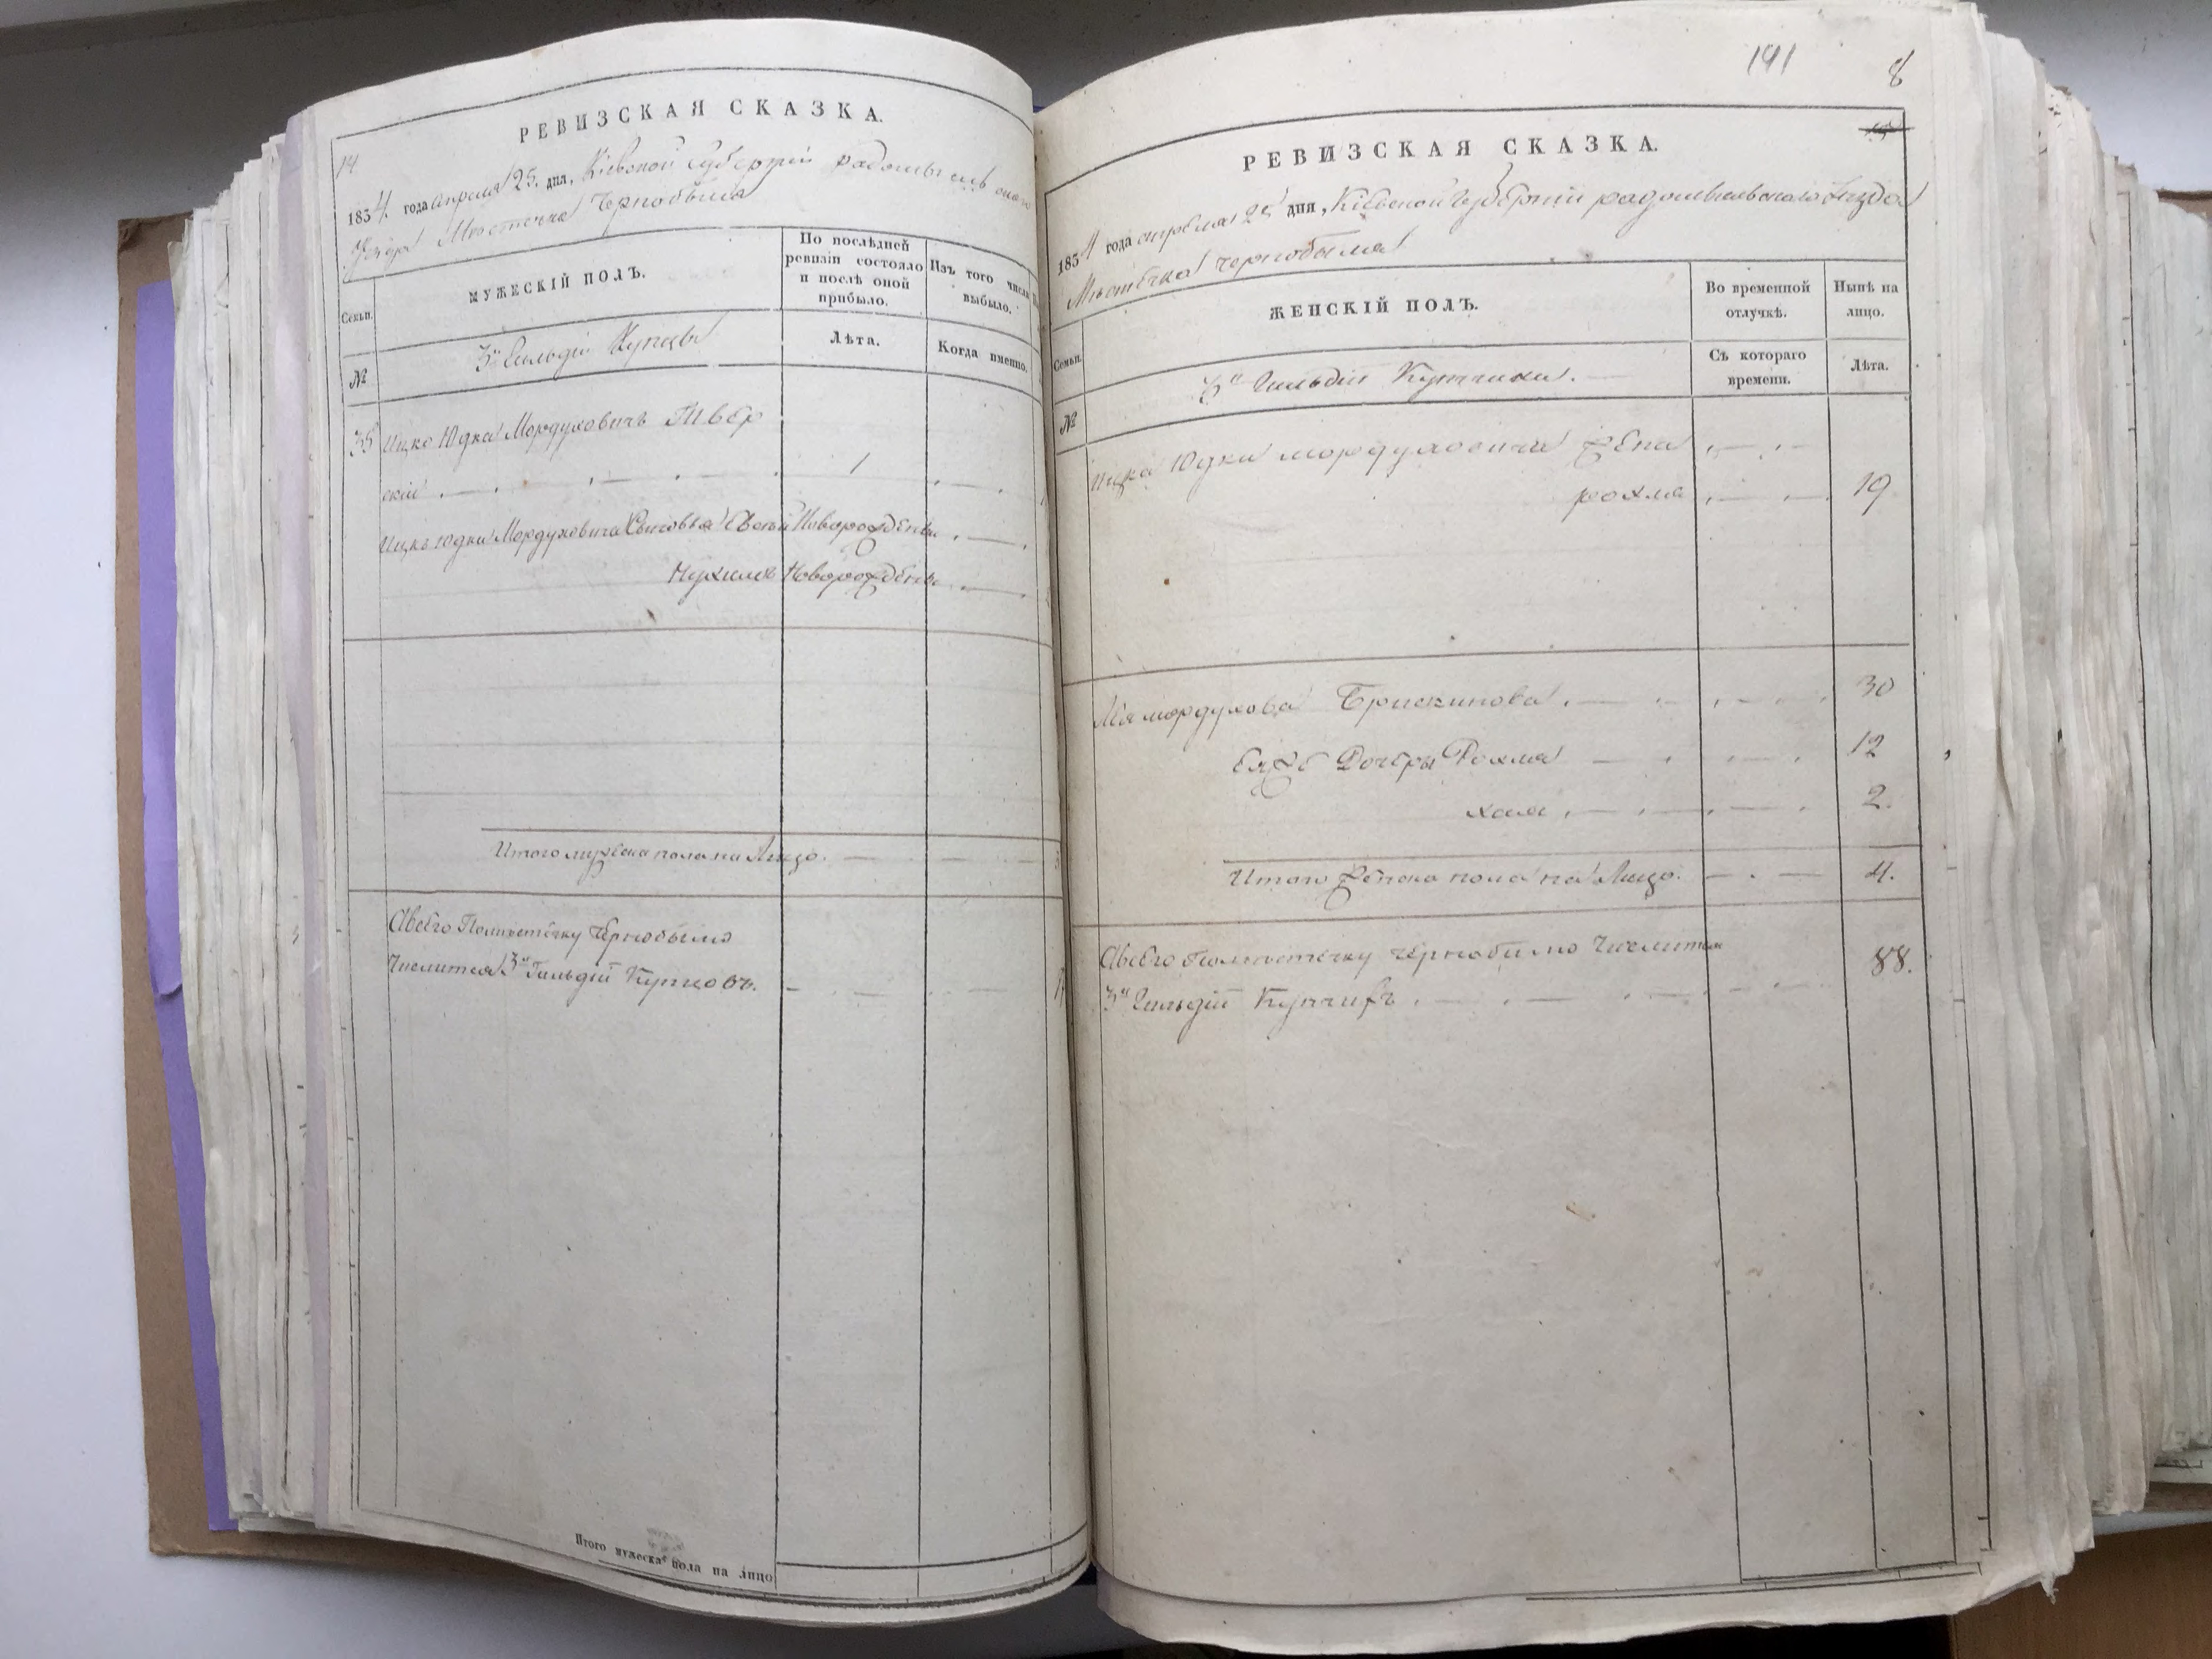 РЕВИЗСКАЯ СКАЗКА.
14
1834 года апреля 25. дня, Кіевской Губерніи радомысльского
Уезда Местечка Чернобыля
Семьи.
№
МУЖЕСКІЙ ПОЛЪ.
3й Гильдіи Купцы
По послѣдней
ревизіи состояло
и послѣ оной
прибыло.
Лѣта.
Изъ того числа
выбыло.
Когда именно.
35 Ицко Юдка Мордуховичъ Твер
скій 1
Ицка Юдки Мордуховича Сыновья Новорожденны
Новорожденны
Итого мужеска пола на Лицо.
Авсего Поместечку Чернобылю
Числится 3й Гильдіи Купцовъ.
Итого мужеска пола на лицо
191
8
РЕВИЗСКАЯ СКАЗКА.
1834 года апреля 25 дня, Кіевской Губерніи радомысльского Уезда
Местечка Чернобыля
Семьи.
№
ЖЕНСКІЙ ПОЛЪ.
3й Гильдіи Купчихи.
Во временной
отлучкѣ.
Съ котораго
времени.
Нынѣ на
лицо.
Лѣта.
Ицка Юдки мордуховича жена
рохля 19
мордухова 30
Еяже Дочеры Рохля 12
хая 2.
Итого женска пола на Лицо. 4.
Авсего поместечку чернобылю Числится
3й Гильдіи Купчихъ 88.